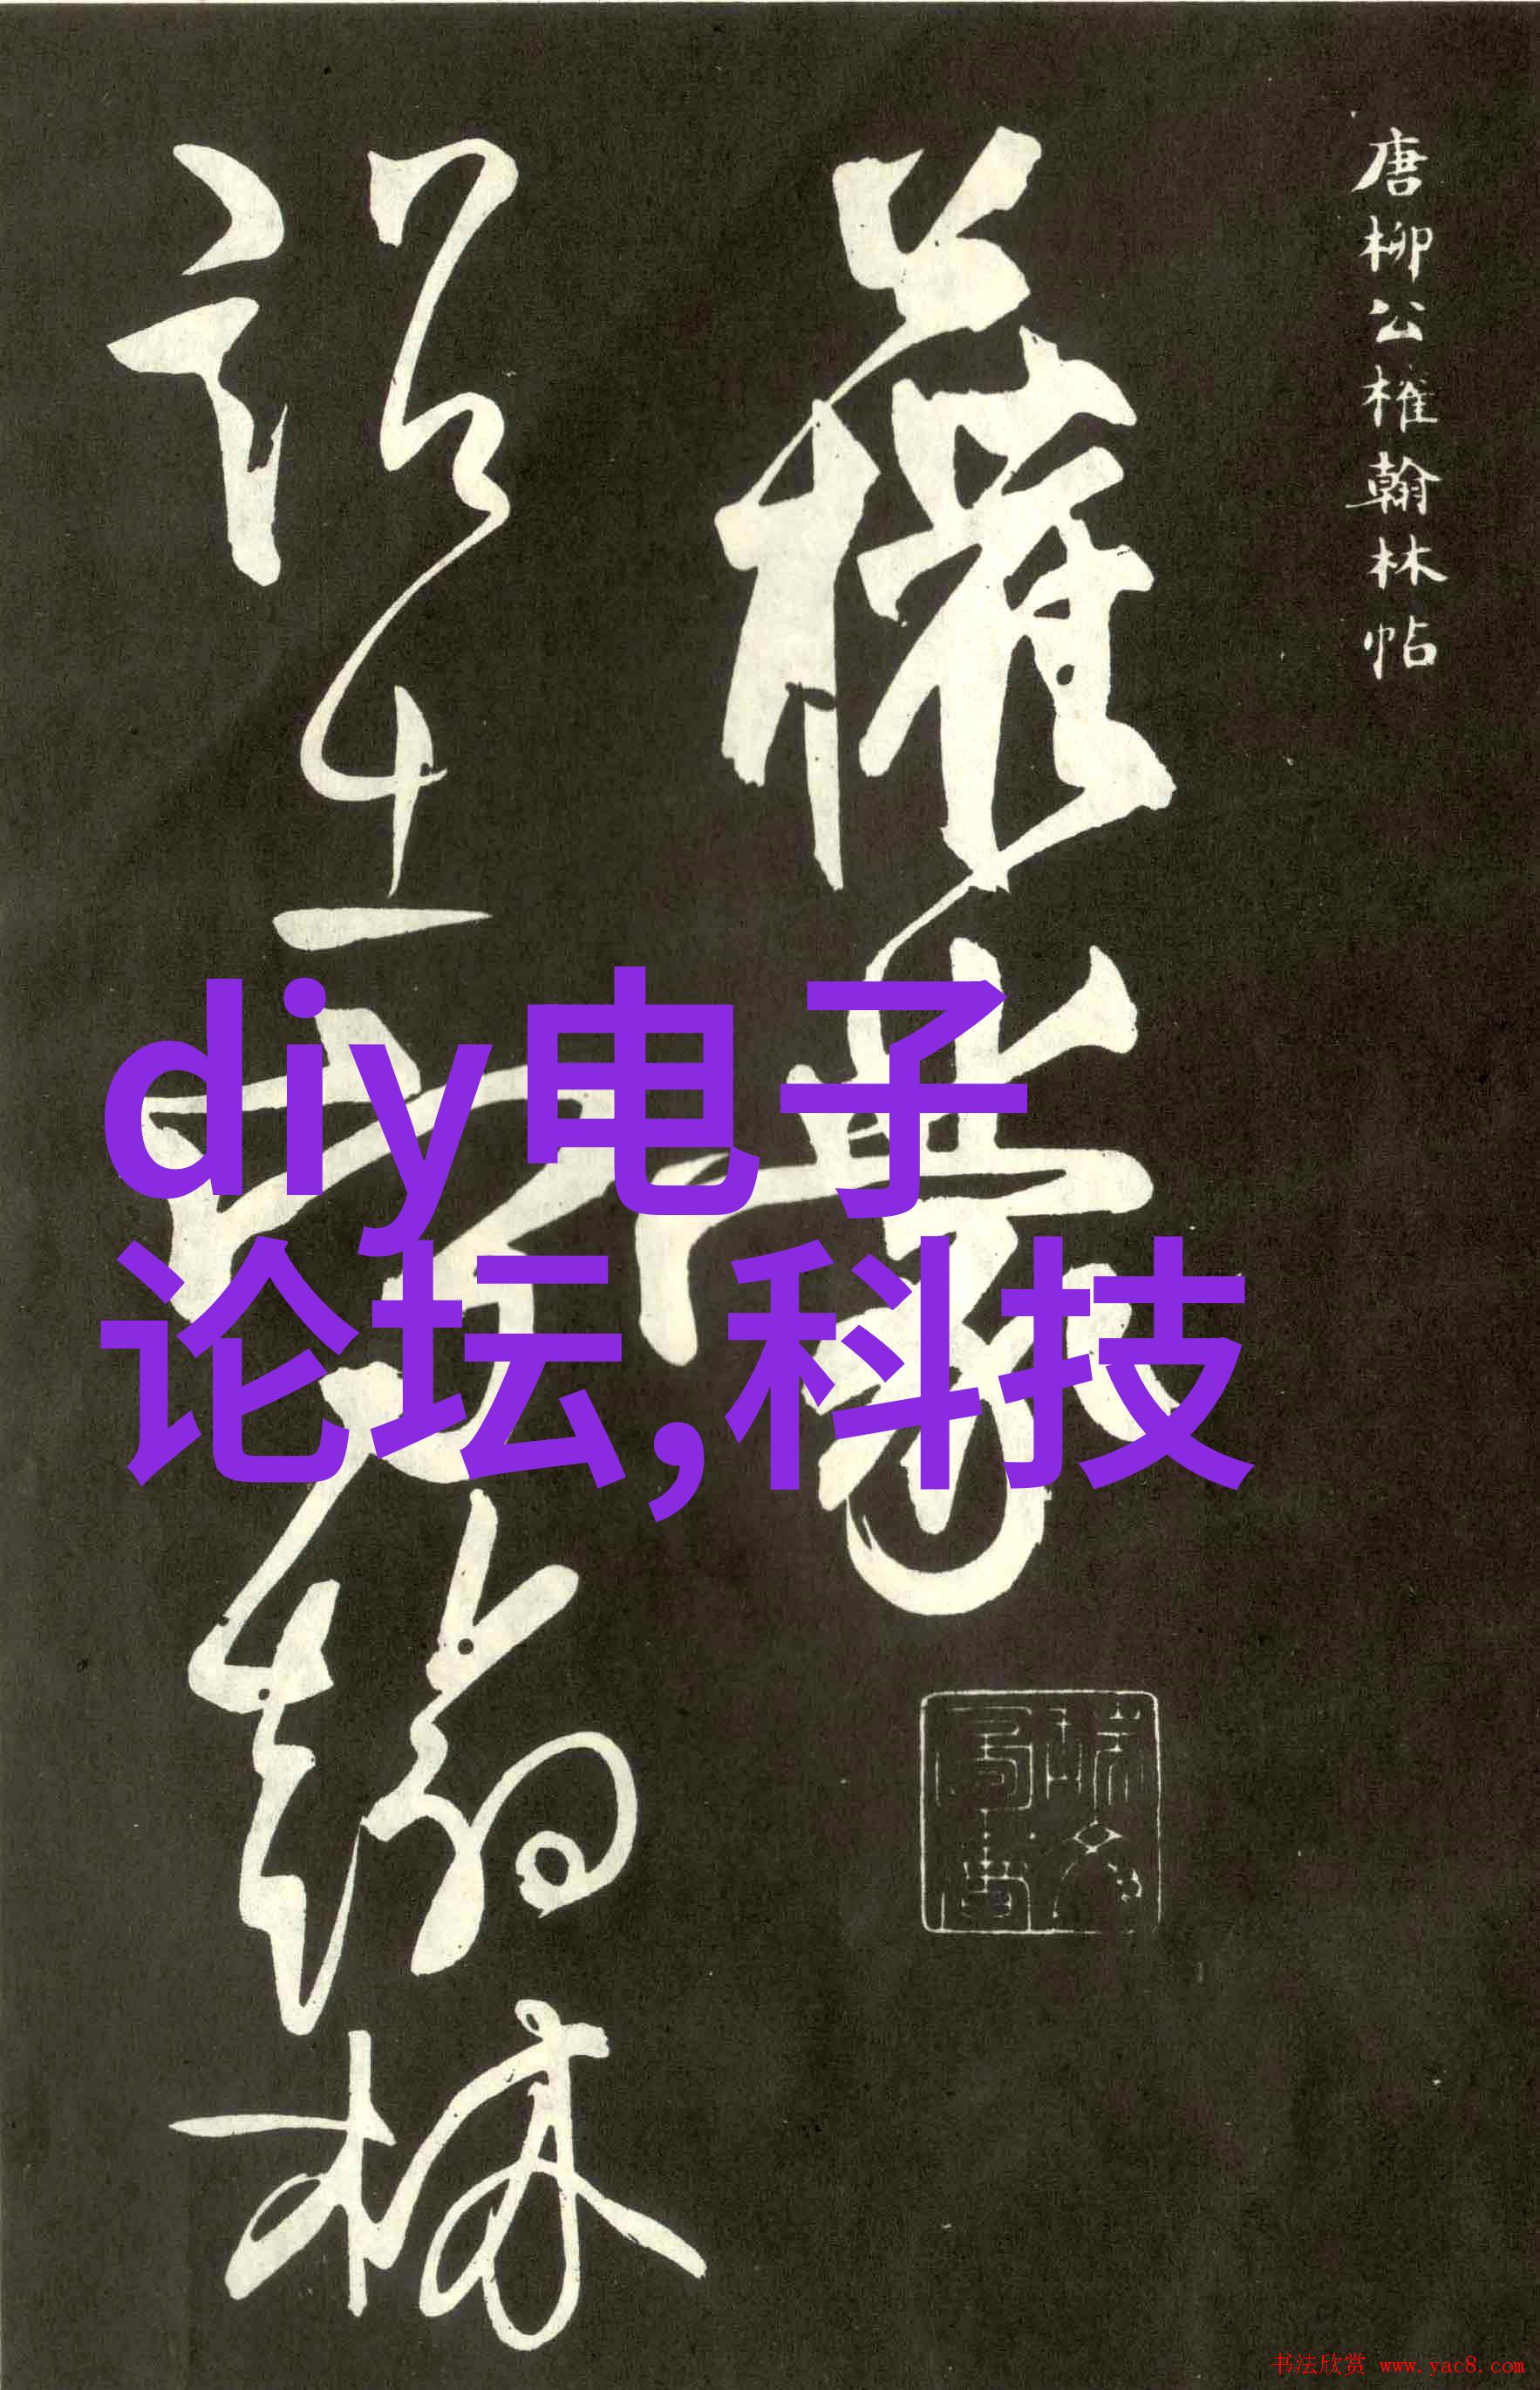 唐柳公權翰林帖
公權蒙
詔出翰林
diy电子
论坛,科技
书法欣赏 www.yac8.com